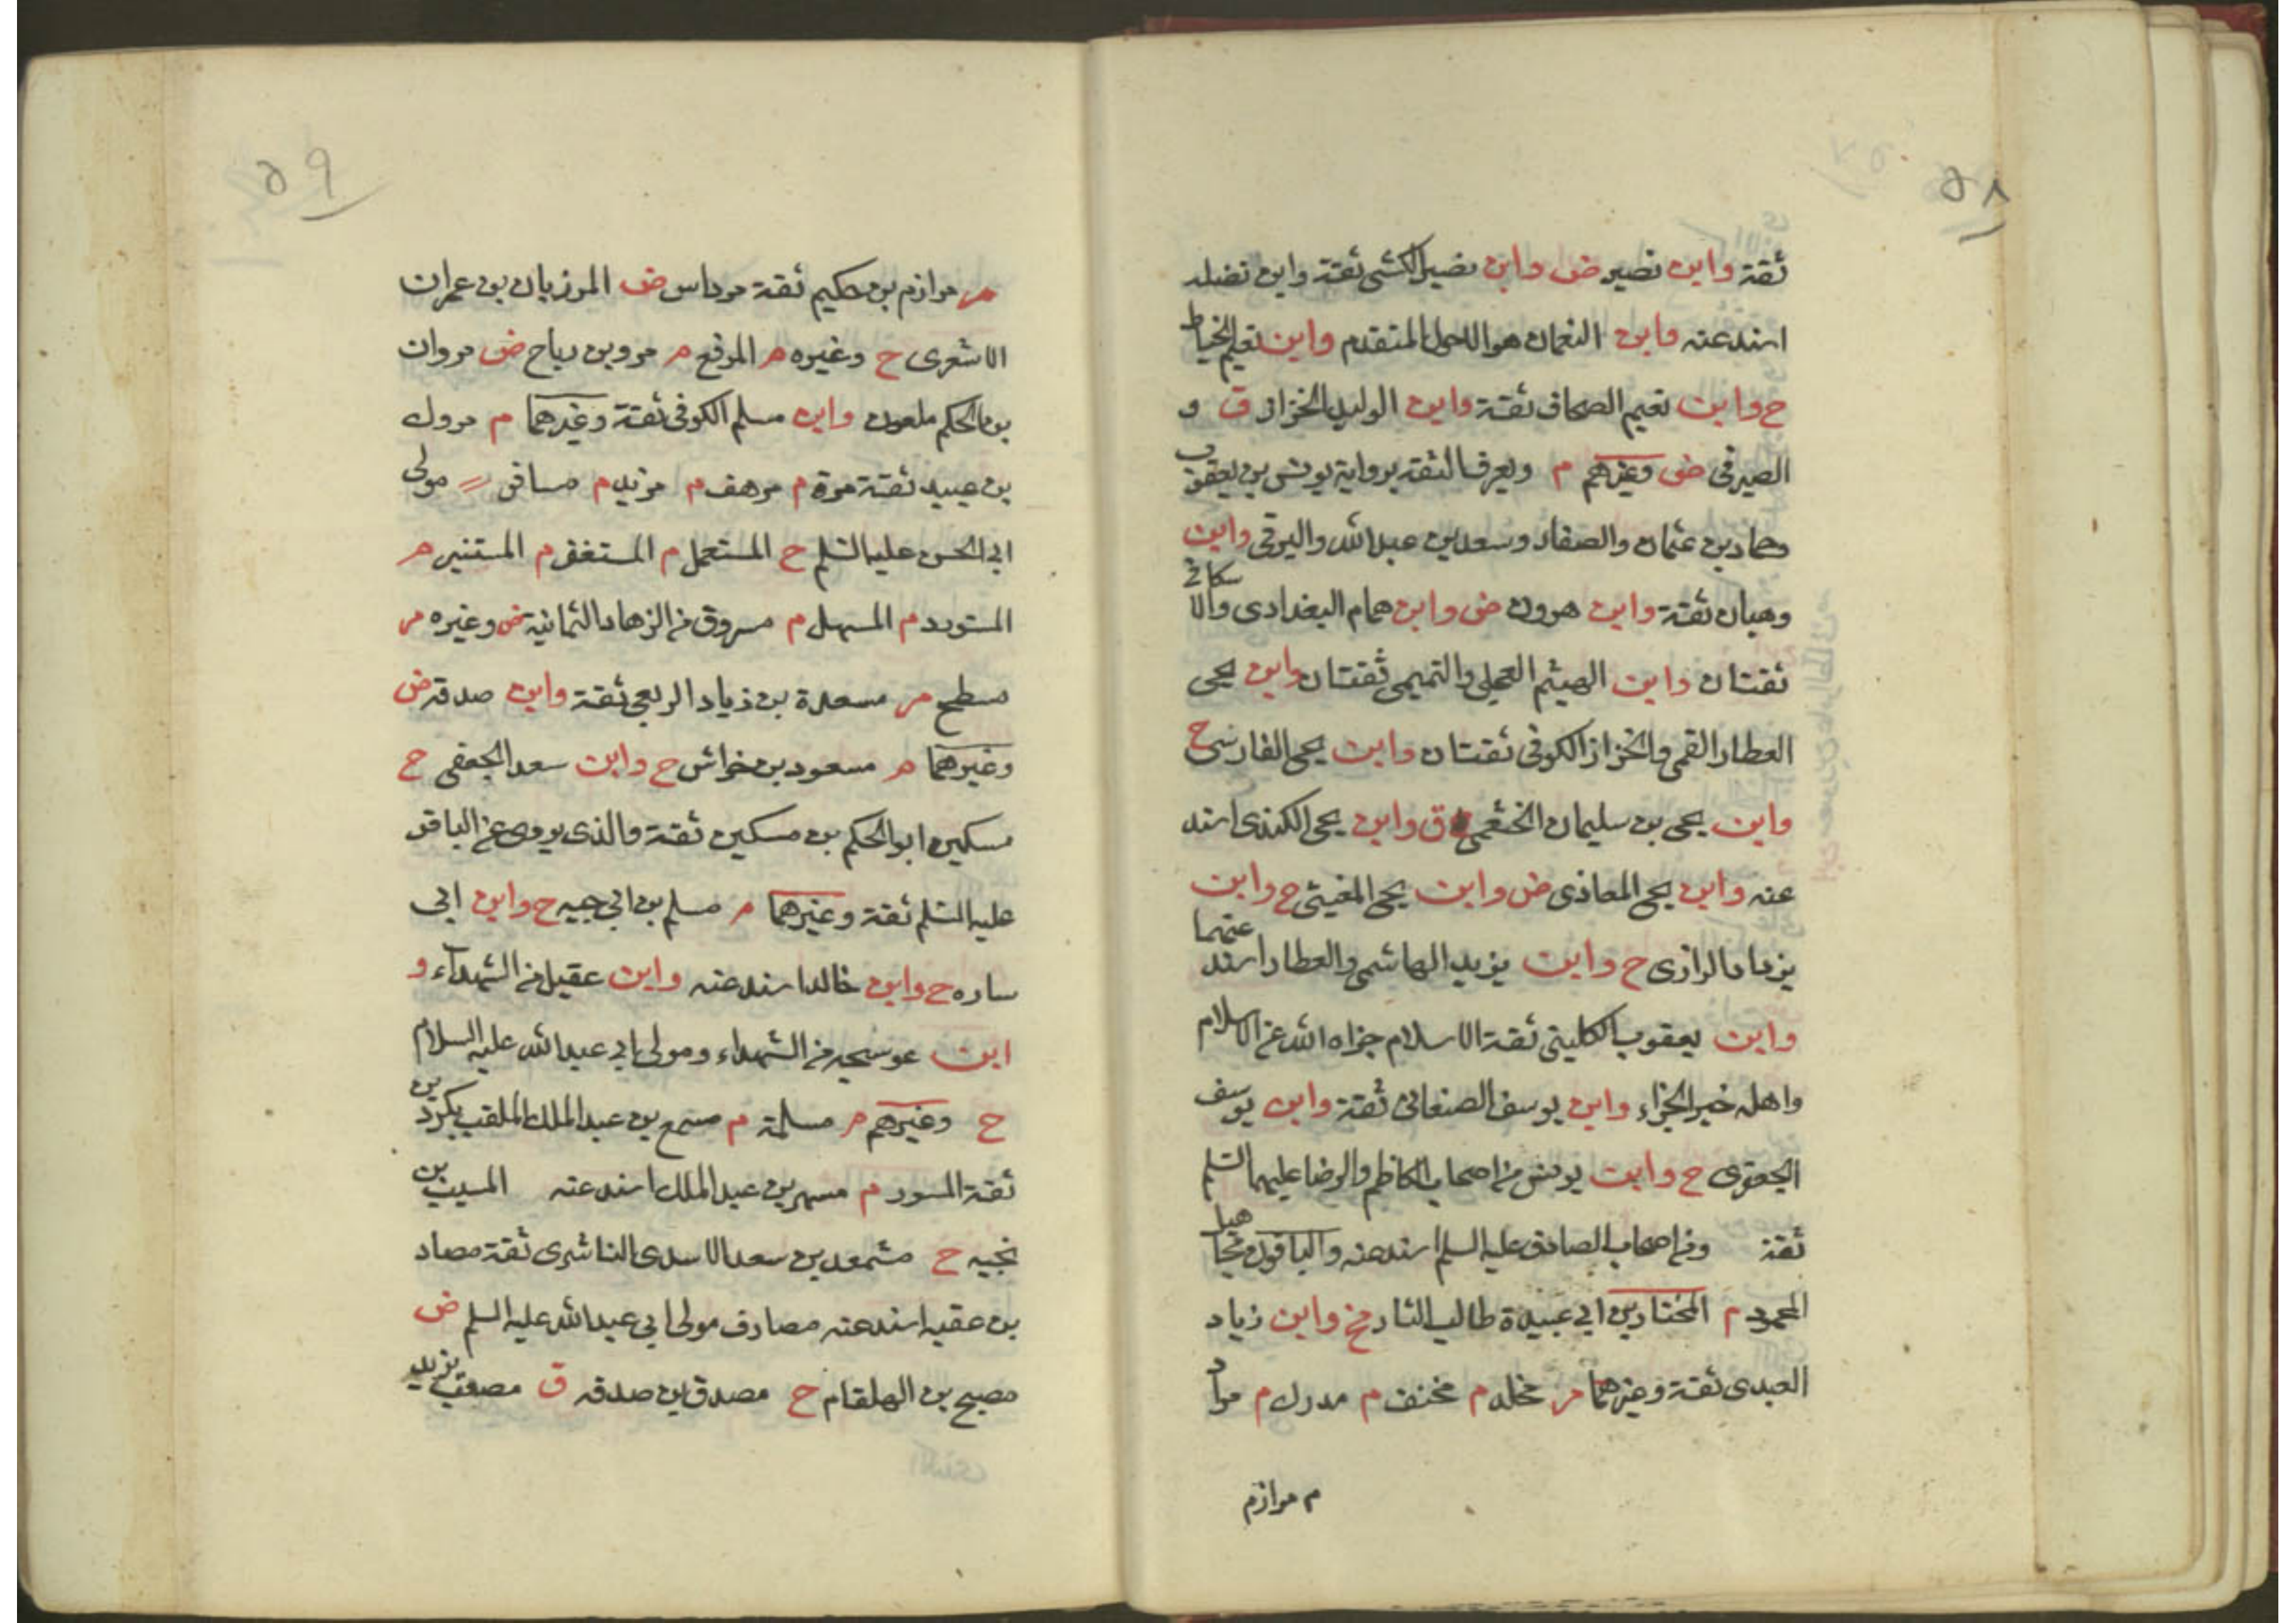 ٥٨
ثقة وابن نصير ض وابن نصير الكشى ثقة وابن نضلة
اسند عنه وابن النعمان هو الاحول المتقدم وابن نعيم الخياط
ح وابن نعيم الصحاف ثقة وابن الوليد الخزاز ق و
الصيرفى ض وغيرهم م ويعرف الثقة برواية يونس بن يعقوب
وحماد بن عثمان والصفار وسعد بن عبدالله والبرقى وابن
وهبان ثقة وابن هرون ض وابن همام البغدادى والاسكافى
ثقتان وابن الهيثم العجلى والتميمى ثقتان وابن يحيى
العطار القمى والخزاز الكوفى ثقتان وابن يحيى الفارسى ح
وابن يحيى بن سليمان الخثعمى ق وابن يحيى الكندى اسند
عنه وابن يحيى المعاذى ض وابن يحيى المغيثى ح وابن
يزداد الرازى ح وابن يزيد الهاشمى والعطار اسند عنهما
وابن يعقوب الكلينى ثقة الاسلام جزاه الله عن الاسلام
واهله خير الجزاء وابن يوسف الصنعانى ثقة وابن يوسف
الجعفرى ح وابن يونس من اصحاب الكاظم والرضا عليهما السلم
ثقة ومن اصحاب الصادق عليه السلم اسند عنه والباقون مجاهيل
المحمود م المختار بن ابى عبيدة طالب الثار ح وابن زياد
العبدى ثقة وغيرهما م مخلد م مخنف م مدرك م مراد
م مرازم
٥٩
م مرازم بن حكيم ثقة مرداس ض المرزبان بن عمران
الاشعرى ح وغيره م المرقع م مرو بن رياح ض مروان
بن الحكم ملعون وابن مسلم الكوفى ثقة وغيرهما م مروك
بن عبيد ثقة مرة م مرهف م مزيد م مسافر مولى
ابى الحسن عليه السلم ح المستعمل م المستغفر م المستنير م
المستورد م المسهل م مسروق من الزهاد الثمانية ض وغيره م
مسطح م مسعدة بن زياد الربعى ثقة وابن صدقه ض
وغيرهما م مسعود بن خراش ح وابن سعد الجعفى ح
مسكين ابو الحكم بن مسكين ثقة والذى يروى عن الباقر
عليه السلم ثقة وغيرهما م مسلم بن ابى حيه ح وابن ابى
ساره ح وابن خالد اسند عنه وابن عقيل من الشهداء و
ابن عوسجه من الشهداء ومولى ابى عبدالله عليه السلام
ح وغيرهم م مسلمة م مسمع بن عبد الملك الملقب بكردين
ثقة المسور م مسهر بن عبد الملك اسند عنه المسيب بن
نجيه ح مشمعل بن سعد الاسدى الناشرى ثقة مصاد
بن عقبه اسند عنه مصادف مولى ابى عبدالله عليه السلم ض
مصبح بن الهلقام ح مصدق بن صدقه ق مصعب بن يزيد